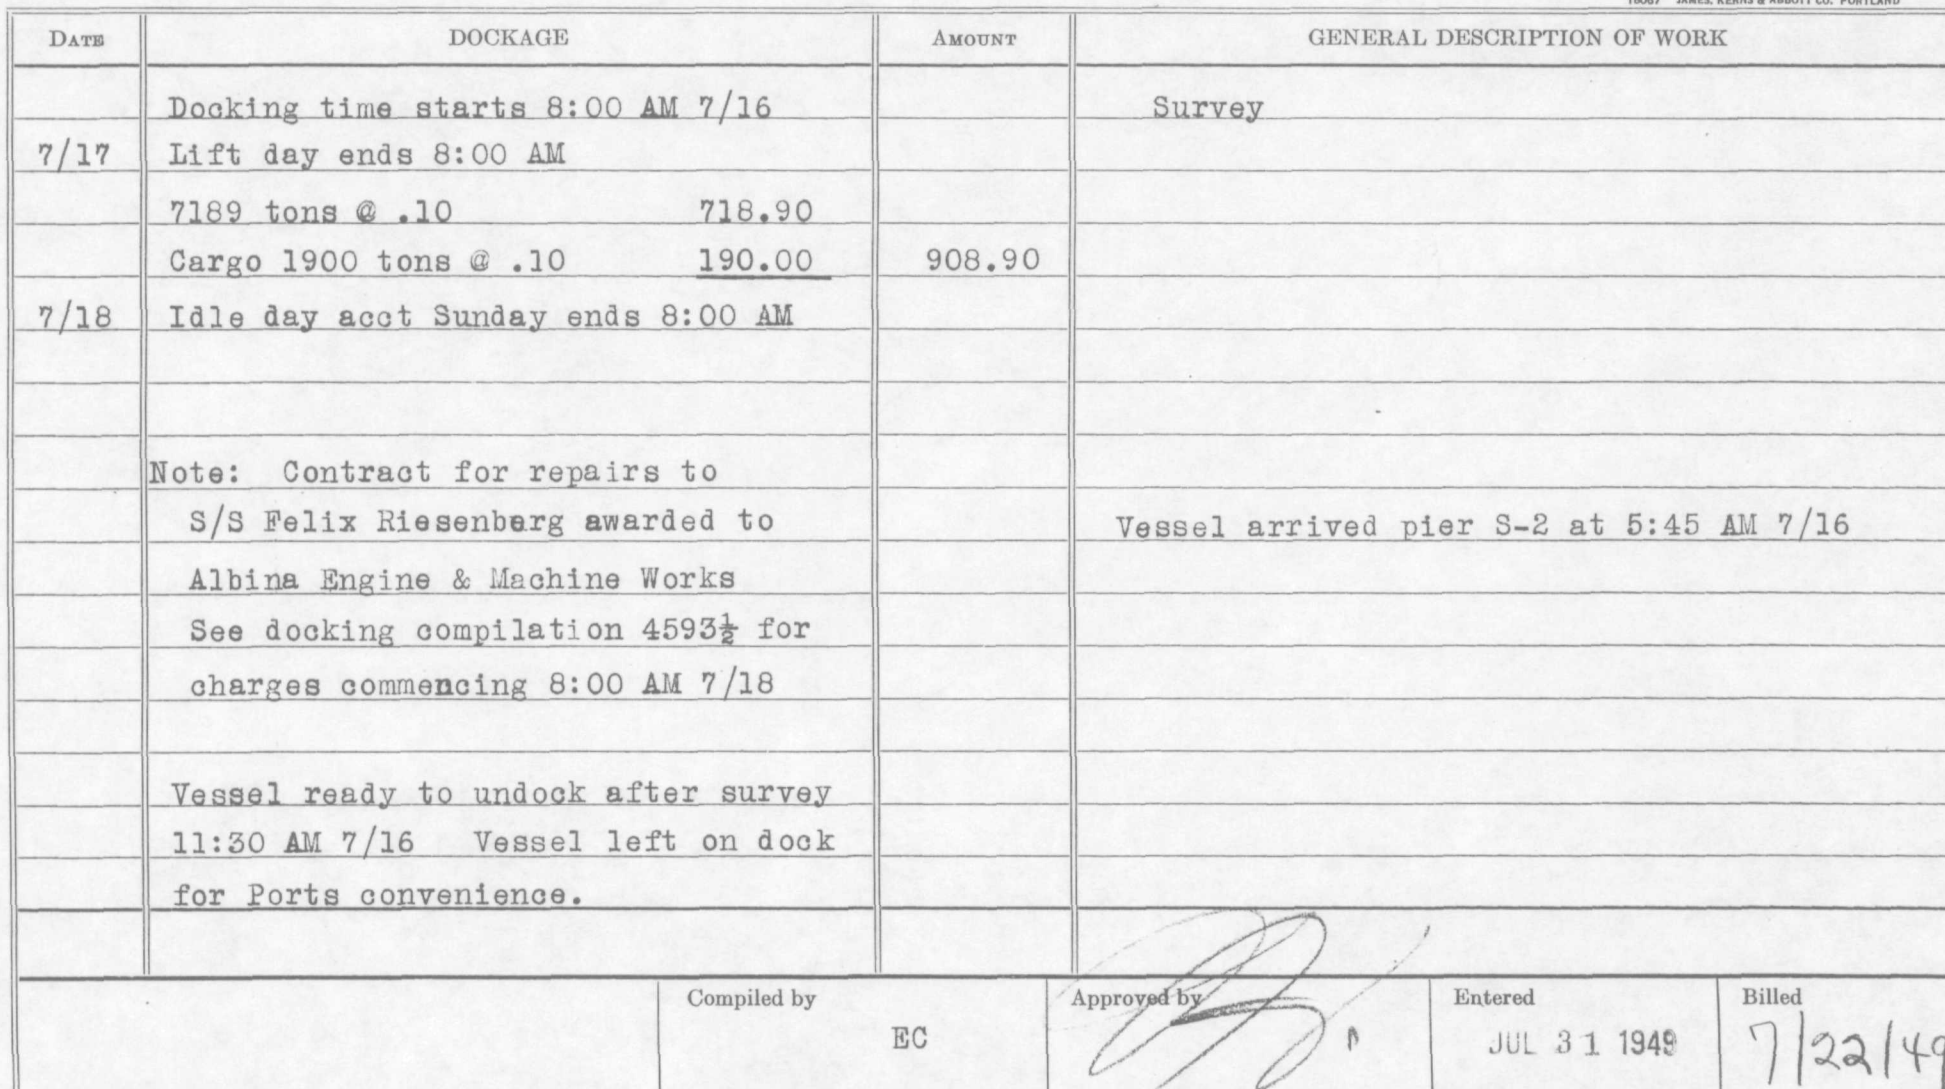 15067 JAMES, KERNS & ABBOTT CO. PORTLAND
DATE DOCKAGE AMOUNT GENERAL DESCRIPTION OF WORK
Docking time starts 8:00 AM 7/16 Survey
7/17 Lift day ends 8:00 AM
7189 tons @ .10 718.90
Cargo 1900 tons @ .10 190.00 908.90
7/18 Idle day acct Sunday ends 8:00 AM
Note: Contract for repairs to
S/S Felix Riesenberg awarded to Vessel arrived pier S-2 at 5:45 AM 7/16
Albina Engine & Machine Works
See docking compilation 4593½ for
charges commencing 8:00 AM 7/18
Vessel ready to undock after survey
11:30 AM 7/16 Vessel left on dock
for Ports convenience.
Compiled by Approved by Entered Billed
EC JUL 31 1949 7/22/49